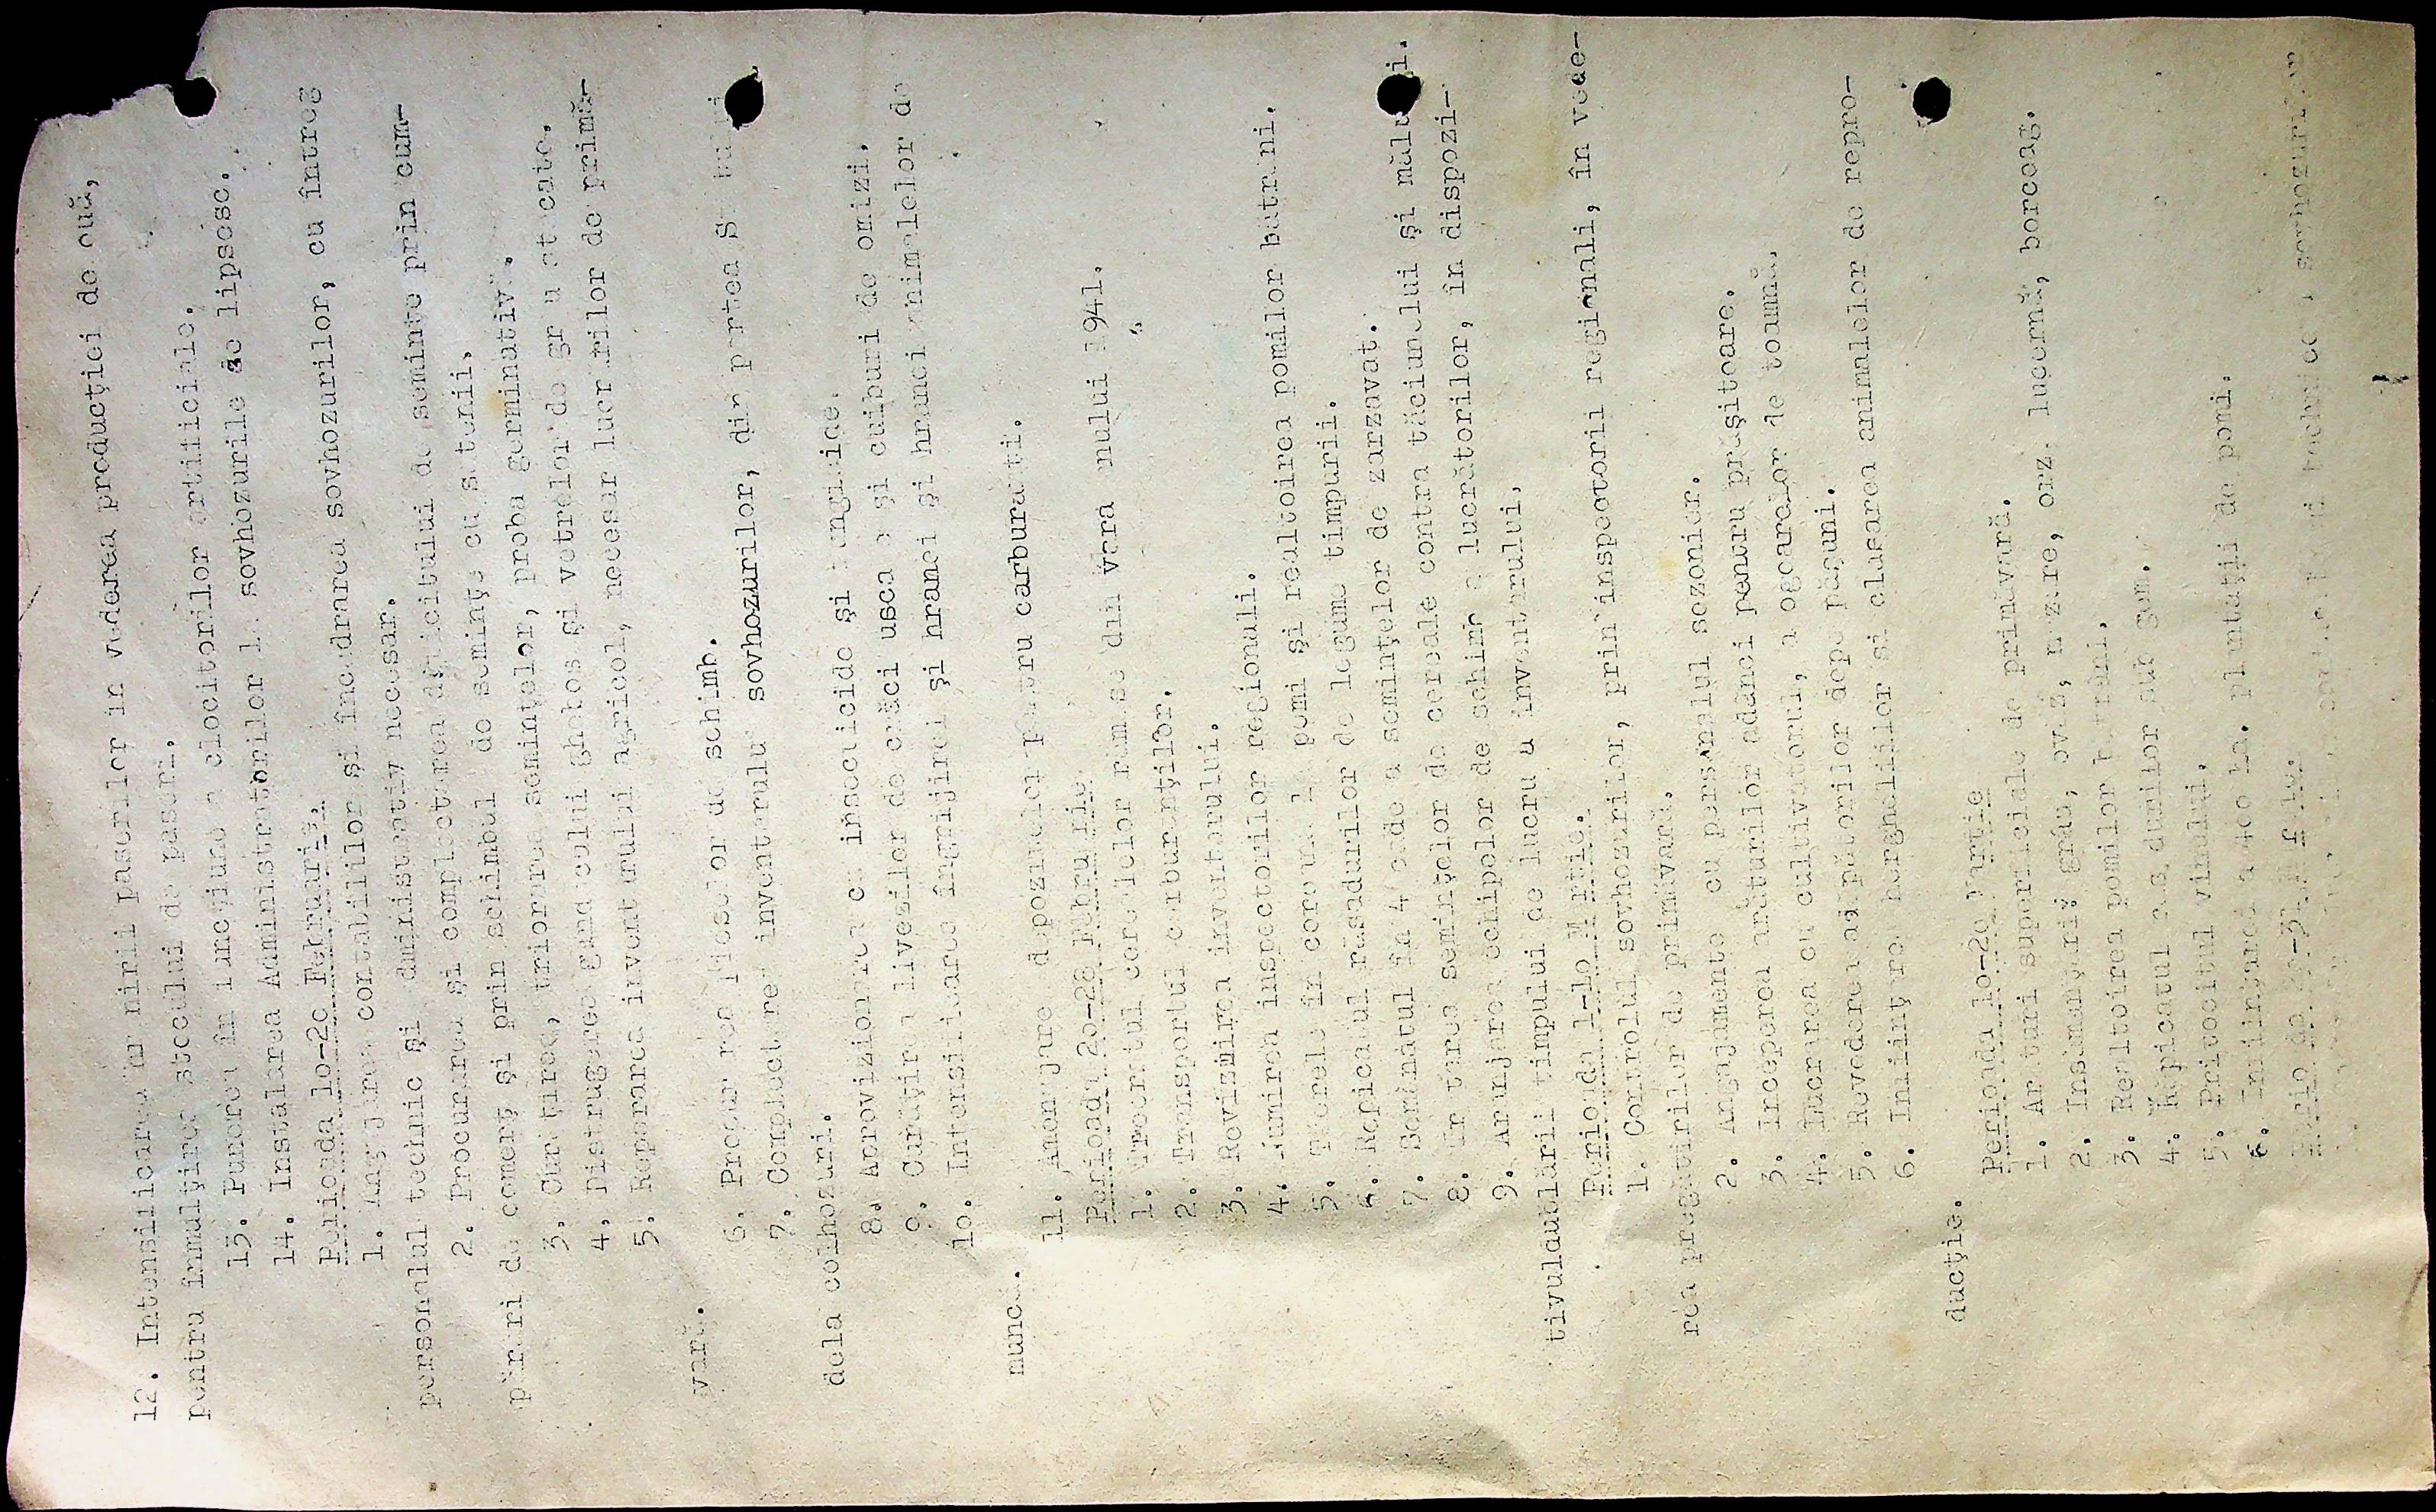 12. Intensificarea hrănirii pasărilor în vederea producţiei de ouă,
pentru înmulţirea stocului de pasări.
13. Punerea în funcţiune a clocitorilor artificiale.
14. Instalarea Administratorilor la sovhozurile ce lipsesc.
Perioada 1o-2o Februarie.
1. Angajarea contabililor şi încadrarea sovhozurilor, cu întreg
personalul technic şi administrativ necesar.
2. Procurarea şi complectarea deficitului de seminte prin cum-
părări de comerţ şi prin schimbul de seminţe cu sătenii.
3. Curăţirea, triorarea seminţelor, proba germinativă.
4. Distrugerea gandacului ghebos şi vetrelor de grâu atacate.
5. Repararea inventarului agricol, necesar lucrărilor de primă-
vară.
6. Procurarea pieselor de schimb.
7. Complectarea inventarului sovhozurilor, din partea
dela colhozuri.
8. Aprovizionarea cu insecticide şi fungicide.
9. Curăţirea livezilor de crăci uscate şi cuiburi de omizi.
1o. Intensificarea îngrijirei şi hranei şi hranei animalelor de
muncă.
11. Amenajarea depozitelor pentru carburanti.
Perioada 2o-28 Februarie.
1. Treeratul cerealelor rămase din vara anului 1941.
2. Transportul carburanţilor.
3. Revizuirea inventarului.
4. Numirea inspectorilor regionali.
5. Tăerele în coroană la pomi şi realtoirea pomilor bătrâni.
6. Repicatul răsadurilor de legume timpurii.
7. Semănatul în 4 a seminţelor de zarzavat.
8. Tratarea seminţelor de cereale contra tăciunelui şi
9. Aranjarea echipelor de schimb a lucrătorilor, în dispozi-
tivul timpului de lucru a inventarului.
Perioada 1-1o Martie.
1. Controlul sovhozurilor, prin inspectorii regionali, în vede-
rea pregătirilor de primăvară.
2. Angajamente cu personalul sezonier.
3. Inceperea arăturilor adânci pentru prăşitoare.
4. Lucrarea cu cultivatorul, a ogoarelor de toamnă.
5. Revederea adăpătorilor depe păşuni.
6. Infiinţarea hergheliilor si clasarea animalelor de repro-
ducţie.
Perioada 1o-2o Martie
1. Arături superficiale de primăvară.
2. Insămanţări: grâu, ovăz, mazăre, orz, lucernă, borceag.
3. Realtoirea pomilor bătrâni.
4. Repicatul răsadurilor sub geam.
5. Pritocitul vinului.
6. Infiinţarea a 4oo ha. plantaţii de pomi.